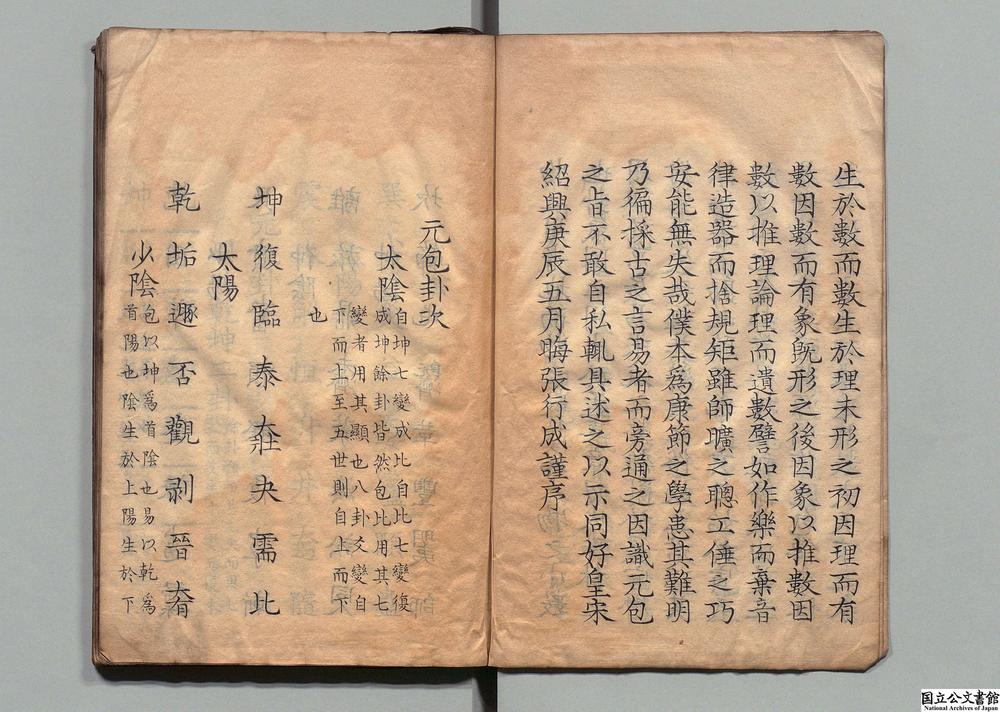 生於數而數生於理未形之初因理而有
數因數而有象既形之後因象以推數因
數以推理論理而遺數譬如作樂而棄音
律造器而捨規矩雖師曠之聰工倕之巧
安能無失哉僕本為康節之學患其難明
乃徧採古之言易者而旁通之因識元包
之旨不敢自私輒具述之以示同好皇宋
紹興庚辰五月晦張行成謹序
元包卦次
太陰
自坤七變成比自比七變復
成坤餘卦皆然包比用其七
變者用其顯也八卦爻變自
下而上至五世則自上而下
也
坤 復 臨 泰 大壯 夬 需 比
太陽
乾 姤 遯 否 觀 剥 晉 大有
少陰
包以坤為首陰也易以乾為
首陽也陰生於上陽生於下
国立公文書館
National Archives of Japan